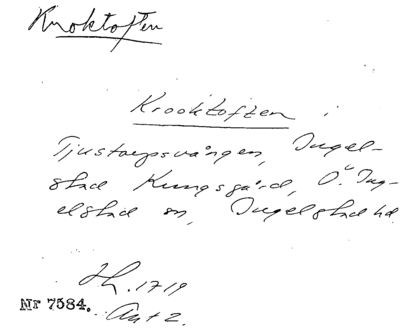 Kroktoften
Krooktoften i
Tjustorpsvången, Ingel-
stad Kungsgård, Ö. Ing-
elstad sn, Ingelstad hd.
Lh. 1719
Nr 7584. Ant 2.